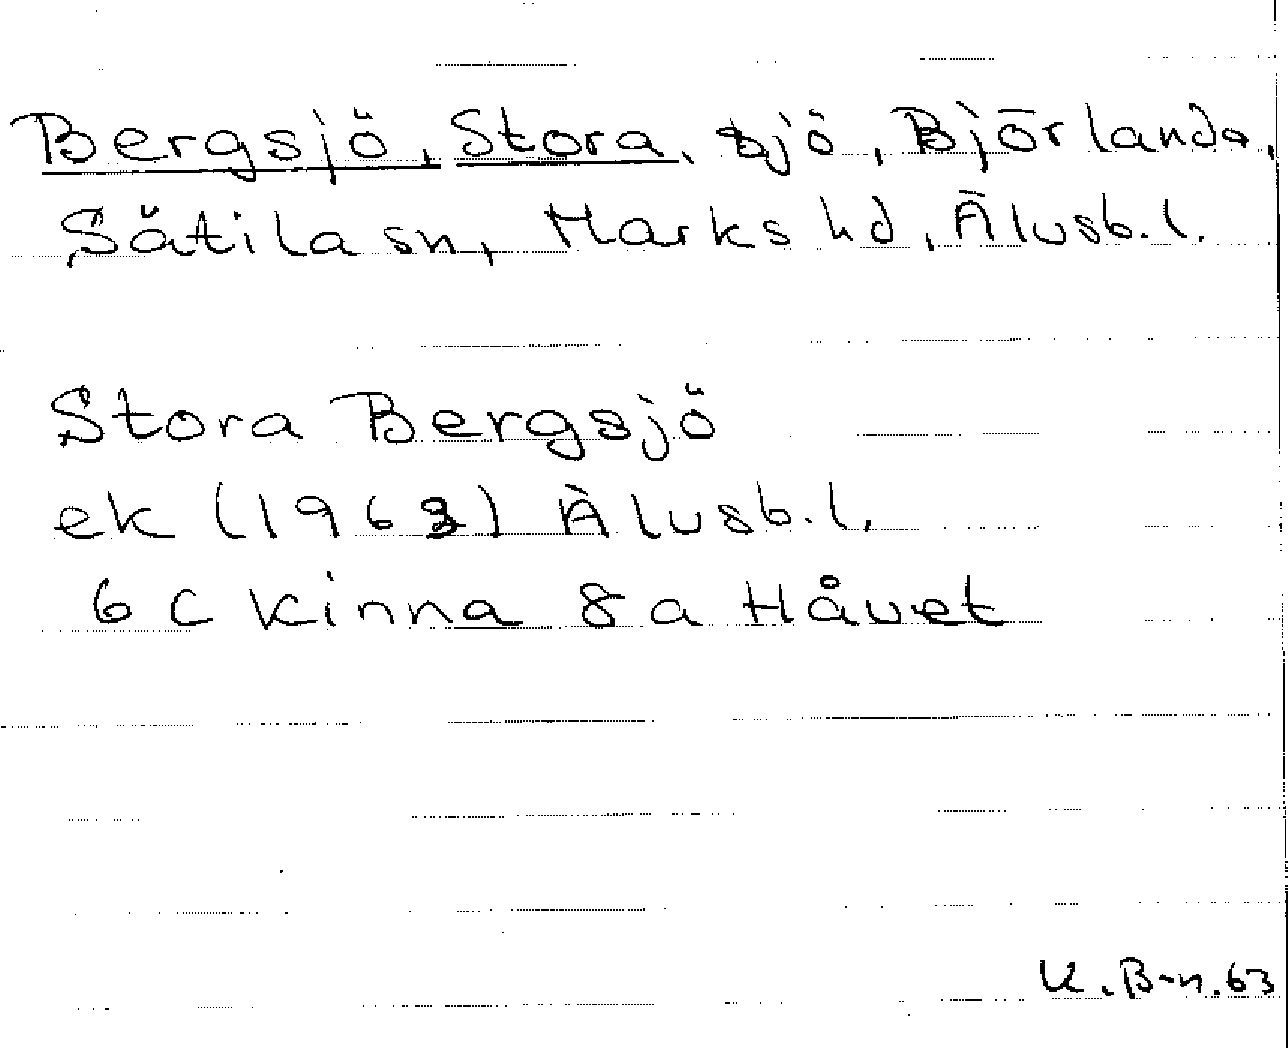 Bergsjö, Stora, sjö, Björlanda,
Sätila sn, Marks hd, Älvsb.l.
Stora Bergsjö
ek (1963) Älvsb.l.
6 C Kinna 8 a Håvet
K.B-n.63